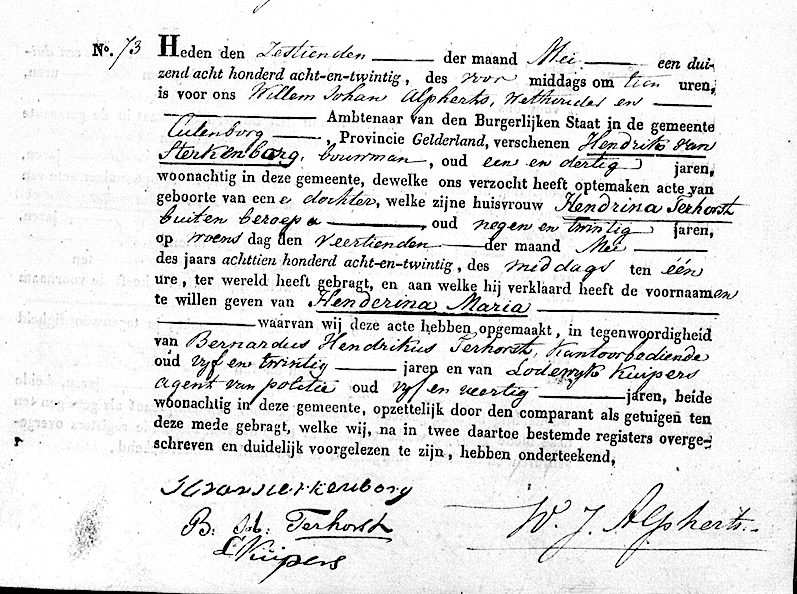 No. 73 Heden den Zestienden der maand Mei een dui-
zend acht honderd acht-en-twintig, des voor middags om tien uren,
is voor ons Willem Johan Alpherts, Wethouder en
Ambtenaar van den Burgerlijken Staat in de gemeente
Culenborg, Provincie Gelderland, verschenen Hendrik van
Sterkenborg, bouwman, oud een en dertig jaren,
woonachtig in deze gemeente, dewelke ons verzocht heeft optemaken acte van
geboorte van eene dochter, welke zijne huisvrouw Hendrina Terhorst
buiten beroep, oud negen en twintig jaren,
op woensdag den Veertienden der maand Mei
des jaars achttien honderd acht-en-twintig, des middags ten één
ure, ter wereld heeft gebragt, en aan welke hij verklaard heeft de voornaamen
te willen geven van Henderina Maria
waarvan wij deze acte hebben opgemaakt, in tegenwoordigheid
van Bernardus Hendrikus Terhorst, Kantoorbediende
oud vyf en twintig jaren en van Lodewyk Kuipers
agent van politie oud vyf en veertig jaren, beide
woonachtig in deze gemeente, opzettelijk door den comparant als getuigen ten
deze mede gebragt, welke wij, na in twee daartoe bestemde registers overge-
schreven en duidelijk voorgelezen te zijn, hebben onderteekend,
H van Sterkenborg
B: H: Terhorst
L Kuipers
W. J. Alpherts